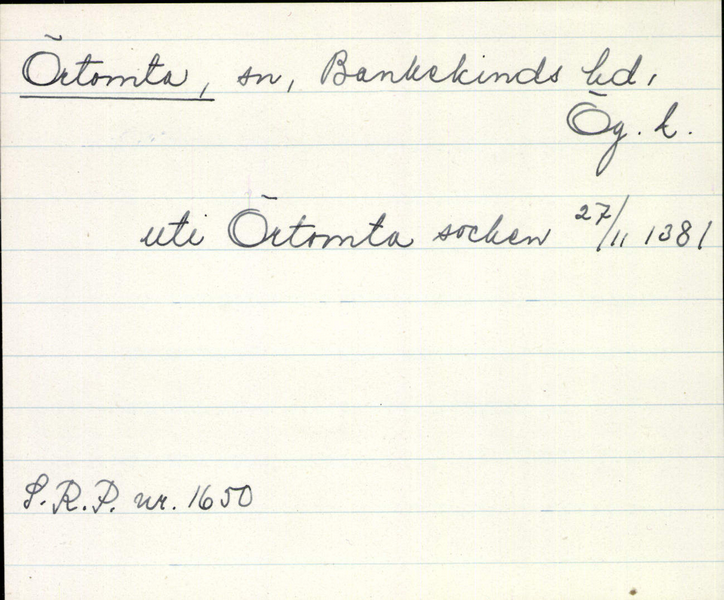 Örtomta, sn, Bankekinds hd,
Ög. l.
uti Örtomta socken 27/11 1381
S.R.P. nr. 1650